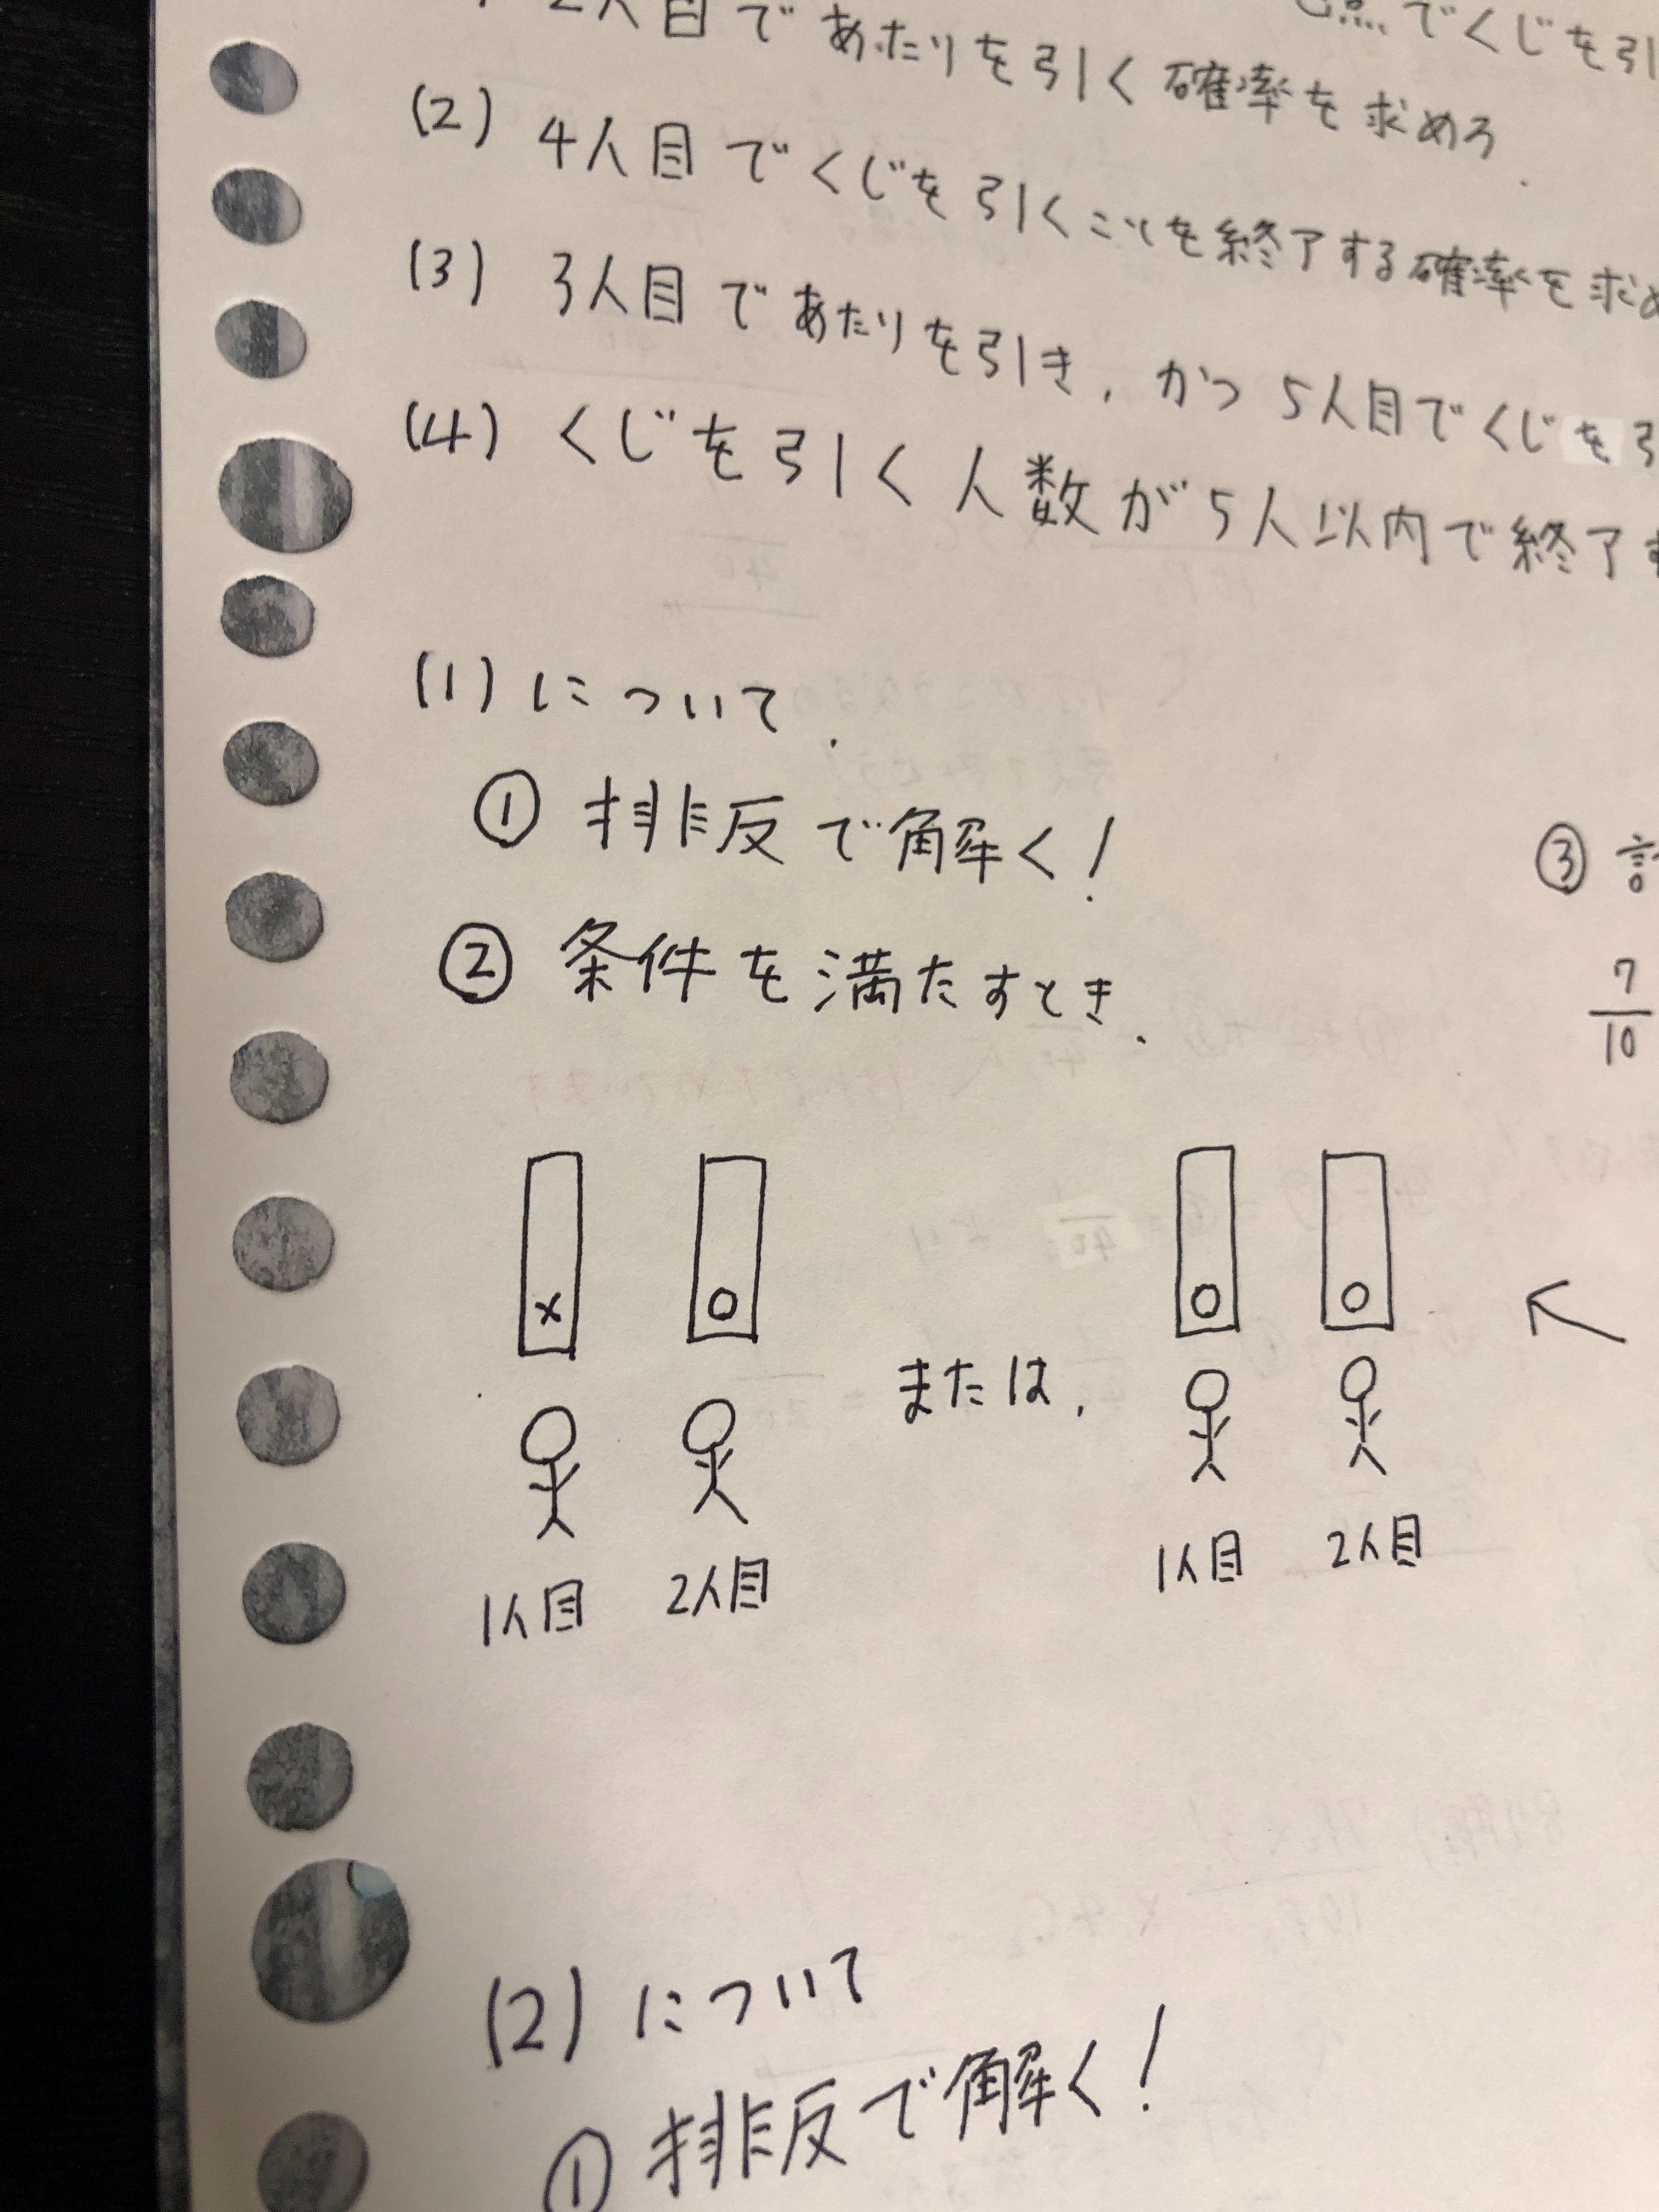 2人目であたりを引く確率を求めろ
点でくじを引
(2) 4人目でくじを引くことを終了する確率を求め
(3) 3人目であたりを引き、かつ5人目でくじを引
(4) くじを引く人数が5人以内で終了す
(1)について
① 排反で解く!
② 条件を満たすとき、
③
7
10
× ○ または、 ○ ○
1人目 2人目 1人目 2人目
(2)について
① 排反で解く!